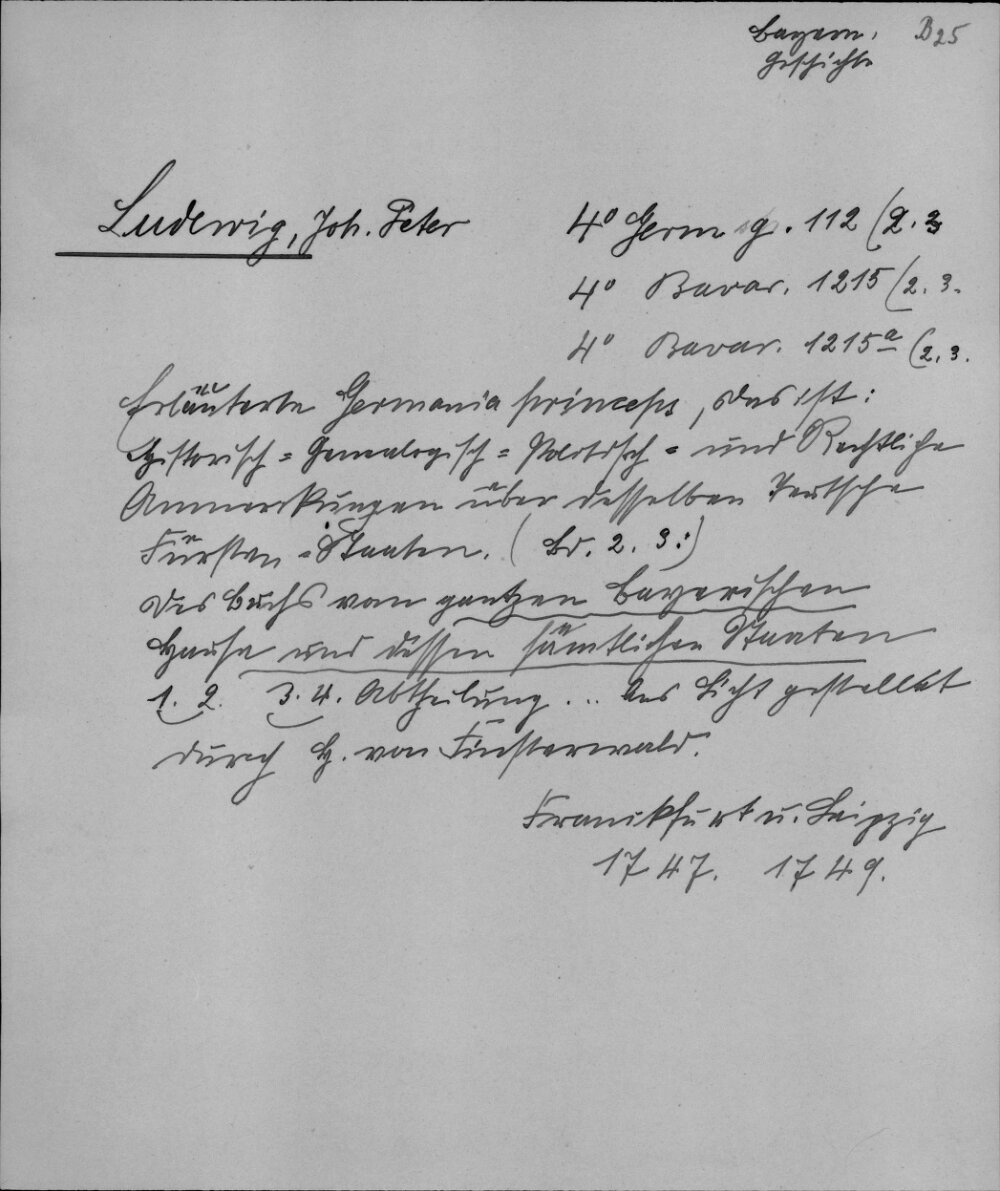 Bayern, B25
Geschichte
Ludewig, Joh. Peter 4° Germ g. 112 (2.3
4° Bavar. 1215 (2.3.
4° Bavar. 1215a (2,3.
Erläuterte Germania princeps, das ist:
Historisch = Genealogisch = Politisch = und Rechtliche
Anmerkungen über desselben Teutsche
Fürsten-Staaten. (Bd. 2. 3:)
Des Buchs vom gantzen Bayerischen
Hause und dessen sämtlichen Staaten
1. 2. 3. 4. Abtheilung ... Ans Licht gestellet
durch H. von Finsterwald.
Frankfurt u. Leipzig
1747. 1749.